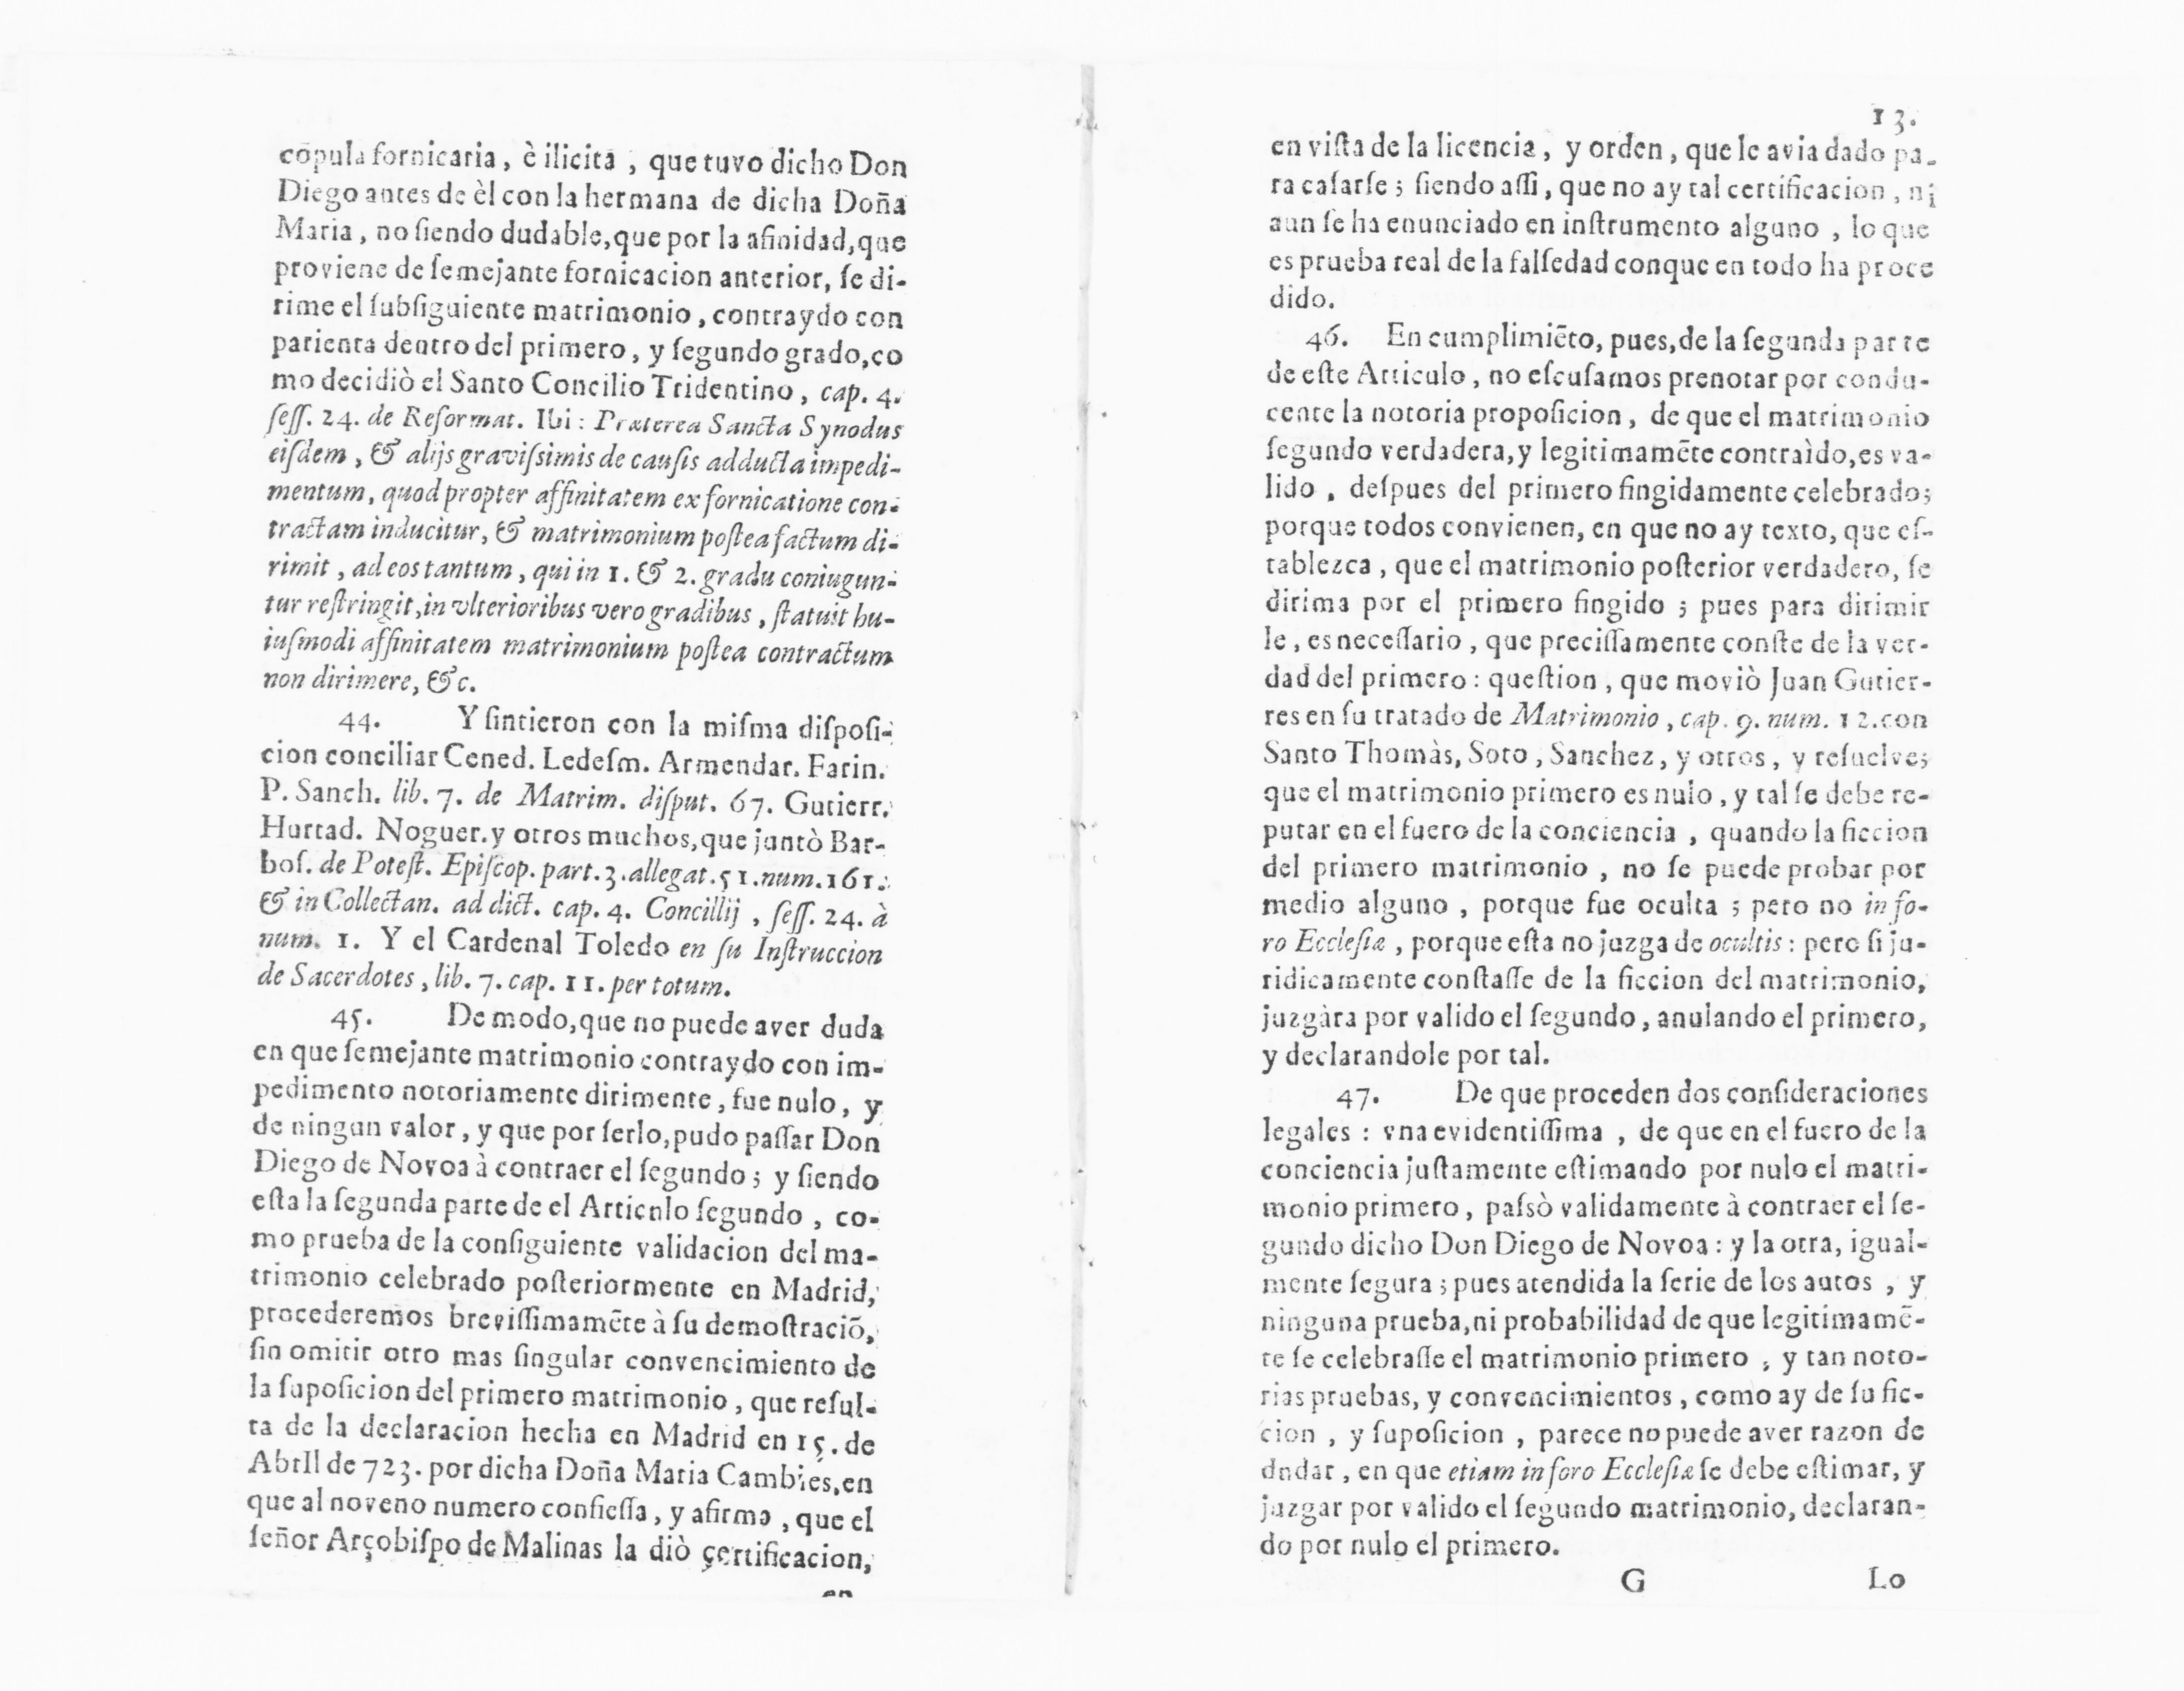 copula fornicaria, è ilicita, que tuvo dicho Don
Diego antes de èl con la hermana de dicha Doña
Maria, no ſiendo dudable, que por la afinidad, que
proviene de ſemejante fornicacion anterior, ſe di-
rime el ſubſiguiente matrimonio, contraydo con
parienta dentro del primero, y ſegundo grado, co
mo decidiò el Santo Concilio Tridentino, cap. 4.
ſeſſ. 24. de Reformat. Ibi: Præterea Sancta Synodus
eiſdem, & alijs graviſsimis de cauſis adducta impedi-
mentum, quod propter affinitatem ex fornicatione con-
tractam inducitur, & matrimonium poſtea factum di-
rimit, ad eos tantum, qui in 1. & 2. gradu coniugun-
tur reſtringit, in vlterioribus vero gradibus, ſtatuit hu-
iuſmodi affinitatem matrimonium poſtea contractum
non dirimere, &c.
44. Y ſintieron con la miſma diſpoſi-
cion conciliar Cened. Ledeſm. Armendar. Farin.
P. Sanch. lib. 7. de Matrim. diſput. 67. Gutierr.
Hurtad. Noguer. y otros muchos, que juntò Bar-
boſ. de Poteſt. Epiſcop. part. 3. allegat. 51. num. 161.
& in Collectan. ad dict. cap. 4. Concillij, ſeſſ. 24. à
num. 1. Y el Cardenal Toledo en ſu Inſtruccion
de Sacerdotes, lib. 7. cap. 11. per totum.
45. De modo, que no puede aver duda
en que ſemejante matrimonio contraydo con im-
pedimento notoriamente dirimente, fue nulo, y
de ningun valor, y que por ſerlo, pudo paſſar Don
Diego de Novoa à contraer el ſegundo; y ſiendo
eſta la ſegunda parte de el Articnlo ſegundo, co-
mo prueba de la conſiguiente validacion del ma-
trimonio celebrado poſteriormente en Madrid,
procederemos breviſſimamẽte à ſu demoſtraciõ,
ſin omitir otro mas ſingular convencimiento de
la ſupoſicion del primero matrimonio, que reſul-
ta de la declaracion hecha en Madrid en 15. de
AbrIl de 723. por dicha Doña Maria Cambiés, en
que al noveno numero confieſſa, y afirma, que el
ſeñor Arçobiſpo de Malinas la diò çertificacion,
en
13.
en viſta de la licencia, y orden, que le avia dado pa-
ra caſarſe; ſiendo aſſi, que no ay tal certificacion, ni
aun ſe ha enunciado en inſtrumento alguno, lo que
es prueba real de la falſedad conque en todo ha proce
dido.
46. En cumplimiẽto, pues, de la ſegunda parte
de eſte Articulo, no eſcuſamos prenotar por condu-
cente la notoria propoſicion, de que el matrimonio
ſegundo verdadera, y legitimamẽte contraìdo, es va-
lido, deſpues del primero fingidamente celebrado;
porque todos convienen, en que no ay texto, que eſ-
tablezca, que el matrimonio poſterior verdadero, ſe
dirima por el primero fingido; pues para dirimir
le, es neceſſario, que preciſſamente conſte de la ver-
dad del primero: queſtion, que moviò Juan Gutier-
res en ſu tratado de Matrimonio, cap. 9. num. 12. con
Santo Thomàs, Soto, Sanchez, y otros, y reſuelve;
que el matrimonio primero es nulo, y tal ſe debe re-
putar en el fuero de la conciencia, quando la ficcion
del primero matrimonio, no ſe puede probar por
medio alguno, porque fue oculta; pero no in fo-
ro Eccleſiæ, porque eſta no juzga de ocultis: pero ſi ju-
ridicamente conſtaſſe de la ficcion del matrimonio,
juzgàra por valido el ſegundo, anulando el primero,
y declarandole por tal.
47. De que proceden dos conſideraciones
legales: vna evidentiſſima, de que en el fuero de la
conciencia juſtamente eſtimando por nulo el matri-
monio primero, paſsò validamente à contraer el ſe-
gundo dicho Don Diego de Novoa: y la otra, igual-
mente ſegura; pues atendida la ſerie de los autos, y
ninguna prueba, ni probabilidad de que legitimamẽ-
te ſe celebraſſe el matrimonio primero, y tan noto-
rias pruebas, y convencimientos, como ay de ſu fic-
cion, y ſupoſicion, parece no puede aver razon de
dndar, en que etiam in foro Eccleſiæ ſe debe eſtimar, y
juzgar por valido el ſegundo matrimonio, declaran-
do por nulo el primero.
G Lo